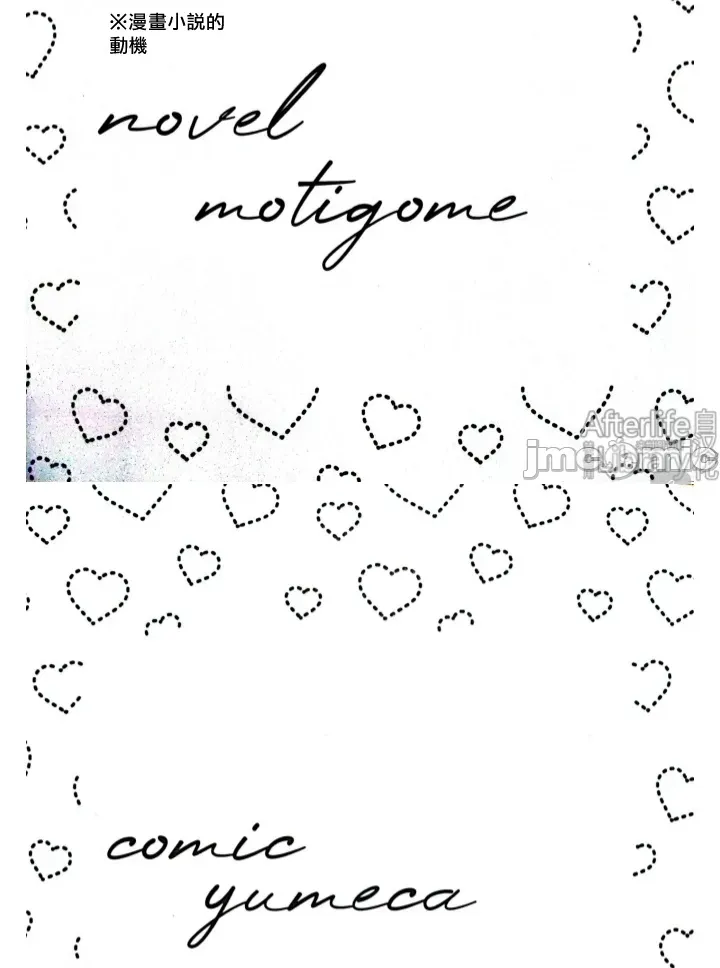 ※漫畫小説的
動機
novel
motigome
Afterlife
comic
yumeca